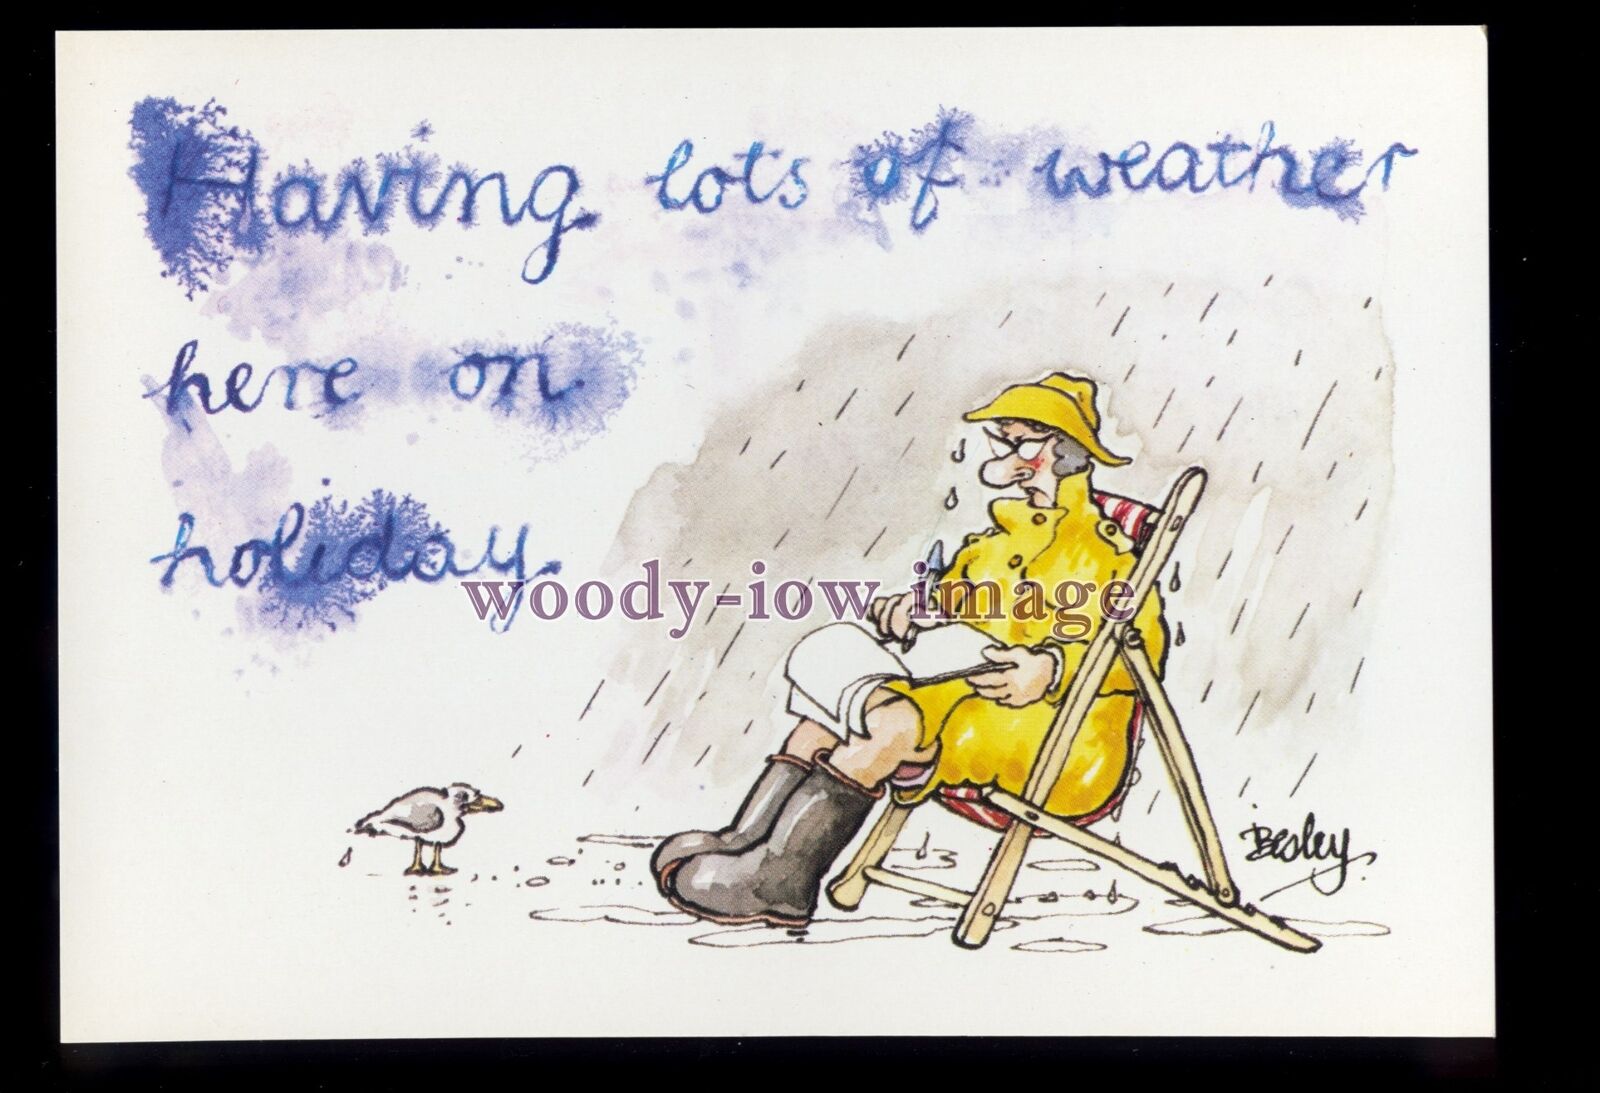 Having lots of weather
here on
holiday.
woody-iow image
Besley